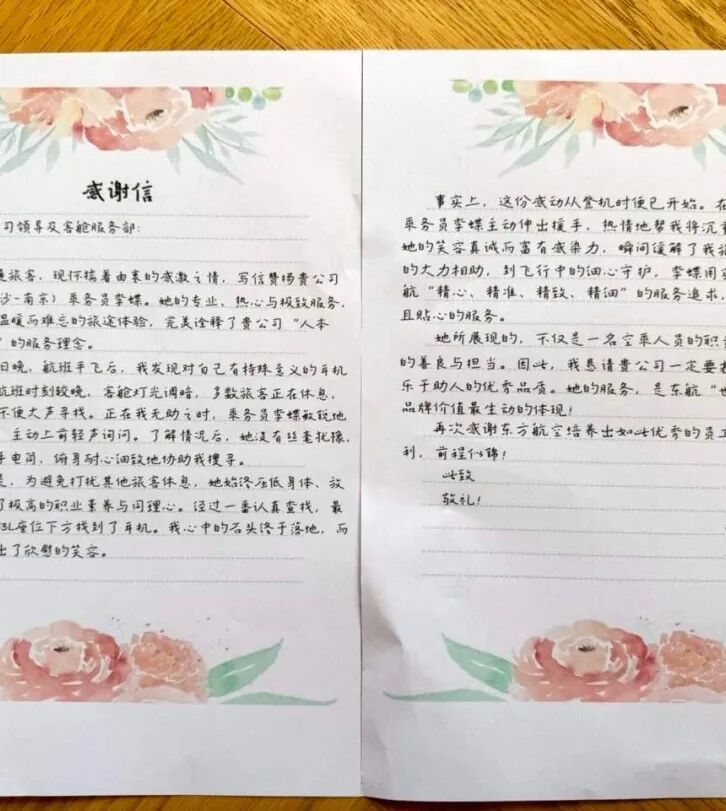 感谢信
司领导及客舱服务部:
旅客，现怀揣着由衷的感激之情，写信赞扬贵公司
沙-南京）乘务员李蝶。她的专业、热心与极致服务，
温暖而难忘的旅途体验，完美诠释了贵公司“人本
”的服务理念。
日晚，航班平飞后，我发现对自己有特殊意义的耳机
航班时刻较晚，客舱灯光调暗，多数旅客正在休息，
不便大声寻找。正在我无助之时，乘务员李蝶敏锐地
，主动上前轻声询问。了解情况后，她没有丝毫犹豫，
手电筒，俯身耐心细致地协助我搜寻。
是，为避免打扰其他旅客休息，她始终压低身体、放
了极高的职业素养与同理心。经过一番认真查找，最
3L座位下方找到了耳机。我心中的石头终于落地，而
出了欣慰的笑容。
事实上，这份感动从登机时便已开始。在
乘务员李蝶主动伸出援手，热情地帮我将沉重
她的笑容真诚而富有感染力，瞬间缓解了我旅
的大力相助，到飞行中的细心守护，李蝶用
航“精心、精准、精致、精细”的服务追求，
且贴心的服务。
她所展现的，不仅是一名空乘人员的职
的善良与担当。因此，我恳请贵公司一定要
乐于助人的优秀品质。她的服务，是东航“
品牌价值最生动的体现！
再次感谢东方航空培养出如此优秀的员工
利，前程似锦！
此致
敬礼！